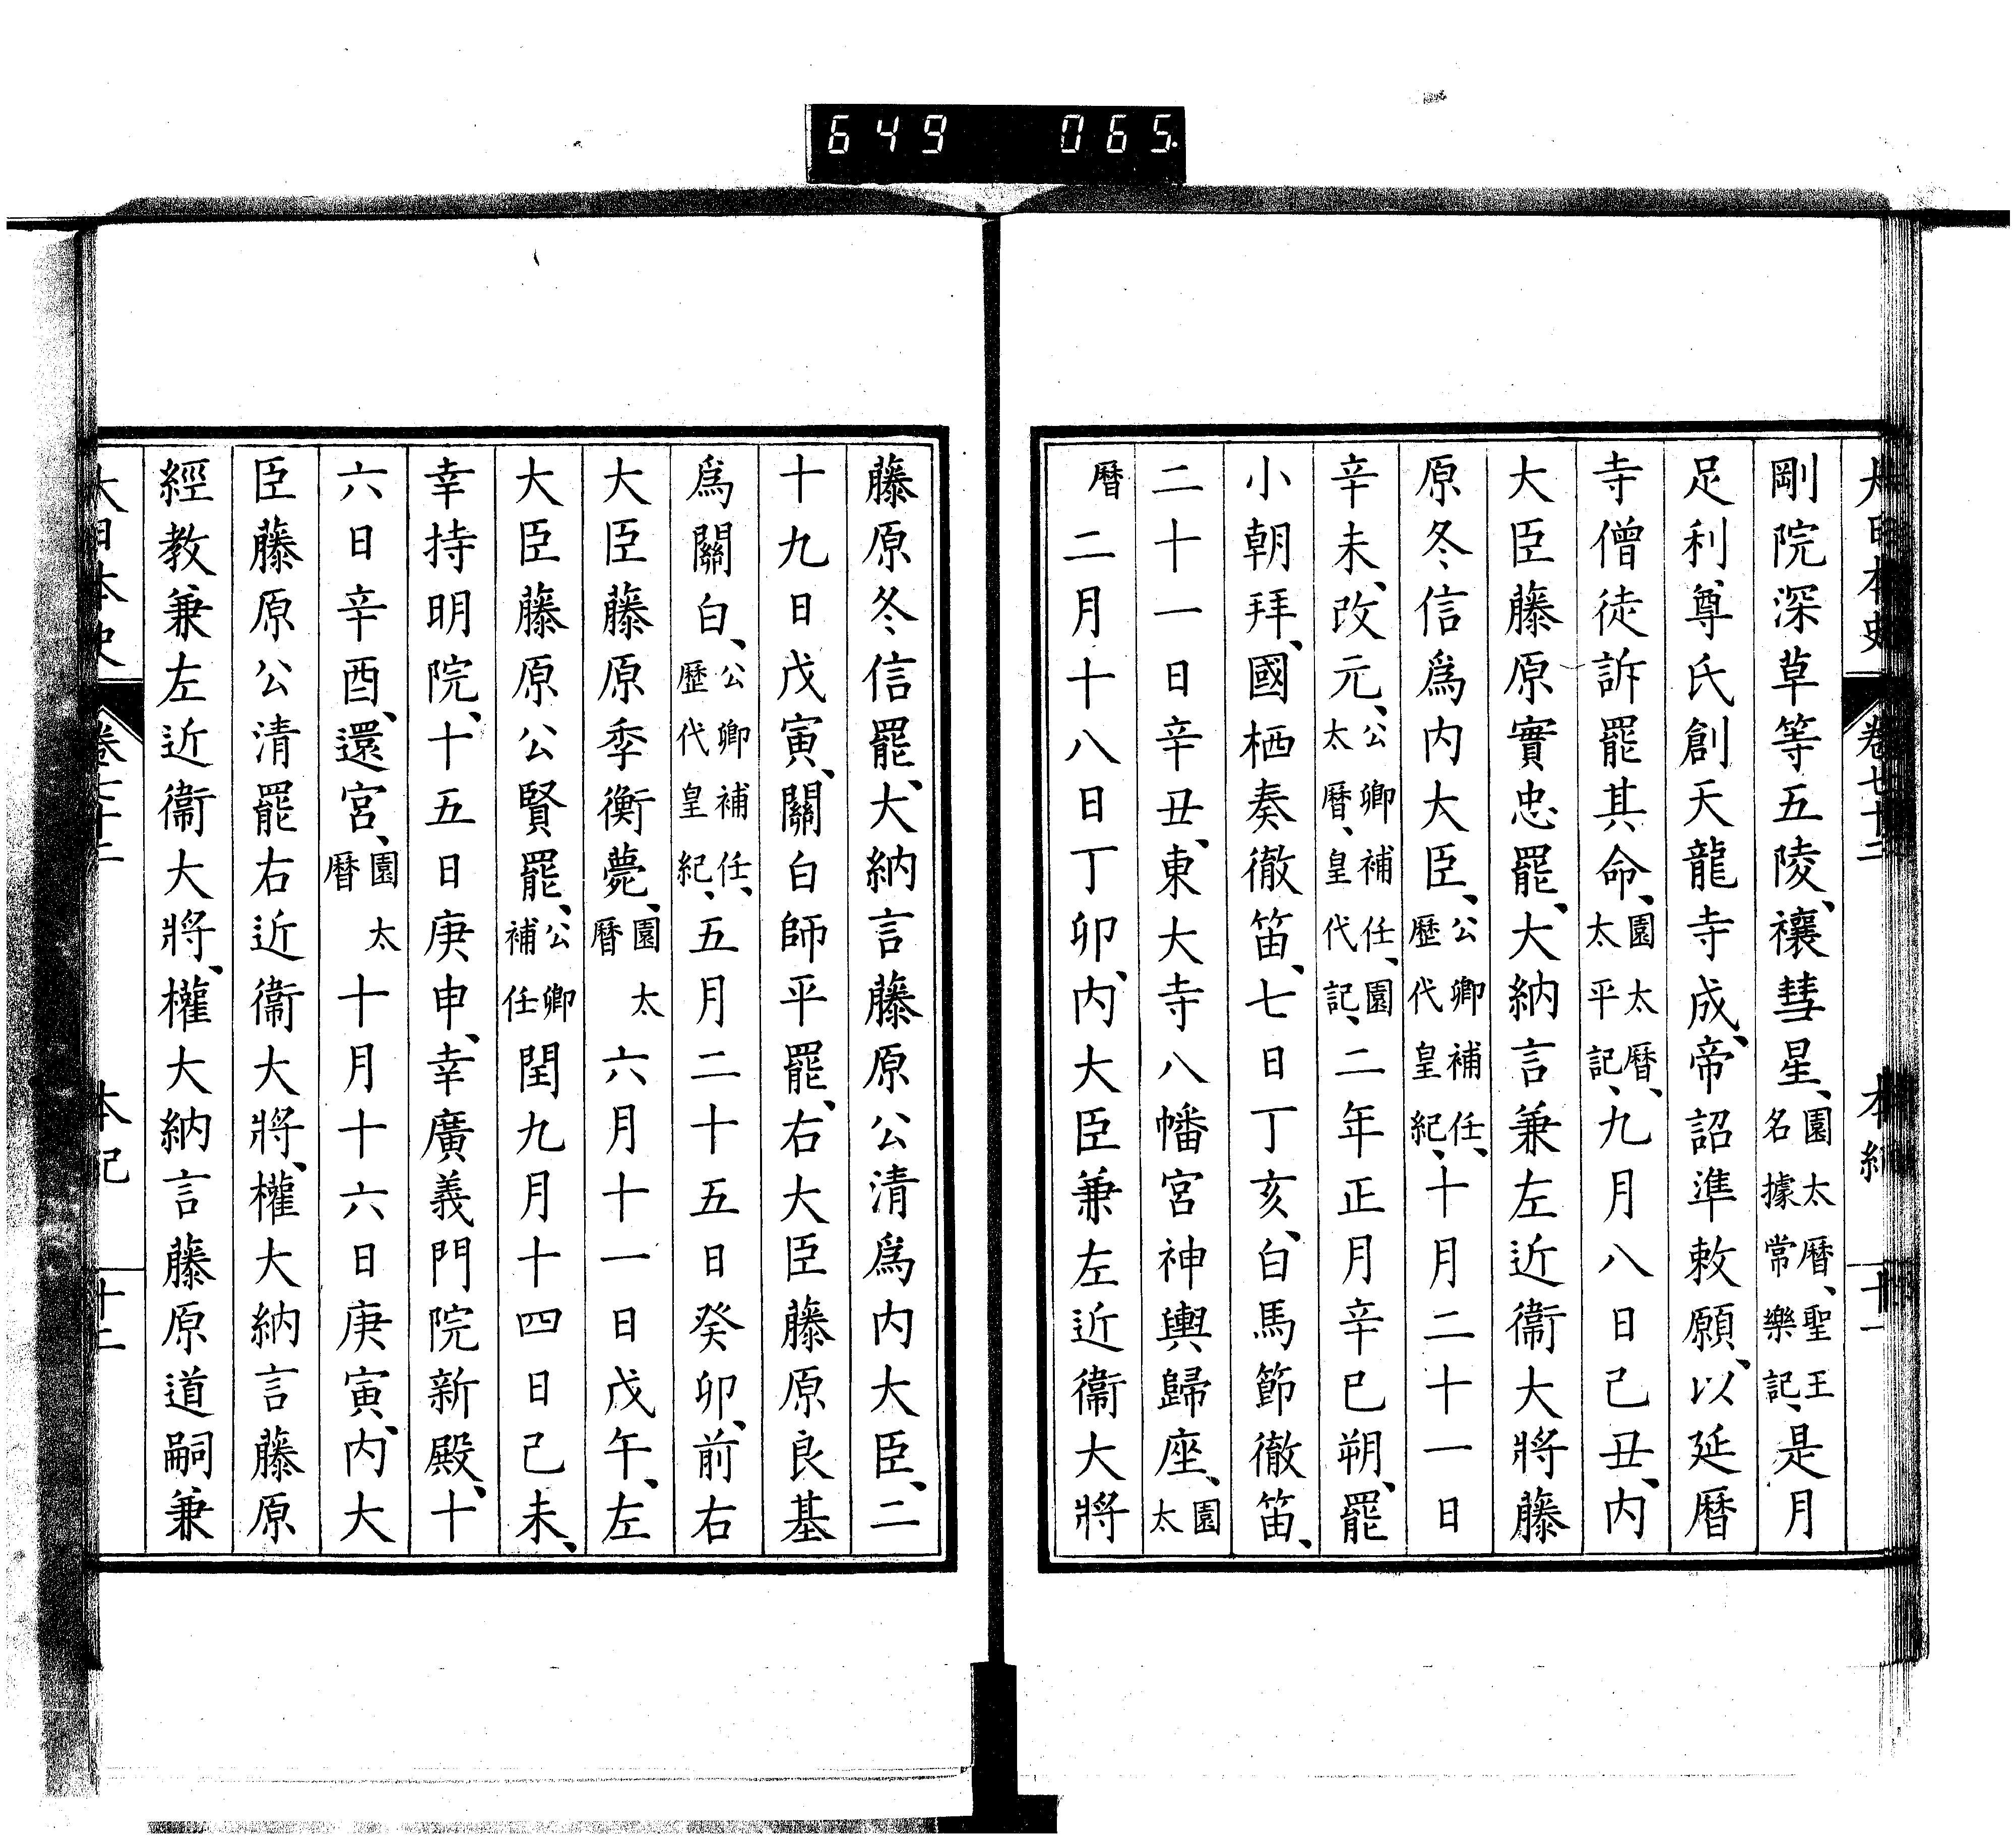 649 065.
大日本史 卷七十二 本紀 十一
剛院深草等五陵、禳彗星、園太曆、聖王名據常樂記、是月
足利尊氏創天龍寺成、帝詔準敕願、以延曆
寺僧徒訴罷其命、園太曆、太平記、九月八日己丑、內
大臣藤原實忠罷、大納言兼左近衞大將藤
原冬信爲內大臣、公卿補任、歷代皇紀、十月二十一日
辛未、改元、公卿補任、園太曆、皇代記、二年正月辛巳朔、罷
小朝拜、國栖奏徹笛、七日丁亥、白馬節徹笛、
二十一日辛丑、東大寺八幡宮神輿歸座、園太
曆二月十八日丁卯、內大臣兼左近衞大將
藤原冬信罷、大納言藤原公清爲內大臣、二
十九日戊寅、關白師平罷、右大臣藤原良基
爲關白、公卿補任、歷代皇紀、五月二十五日癸卯、前右
大臣藤原季衡薨、園太曆六月十一日戊午、左
大臣藤原公賢罷、公卿補任閏九月十四日己未、
幸持明院、十五日庚申、幸廣義門院新殿、十
六日辛酉、還宮、園太曆十月十六日庚寅、內大
臣藤原公清罷右近衞大將、權大納言藤原
經教兼左近衞大將、權大納言藤原道嗣兼
大日本史 卷七十二 本紀 十二